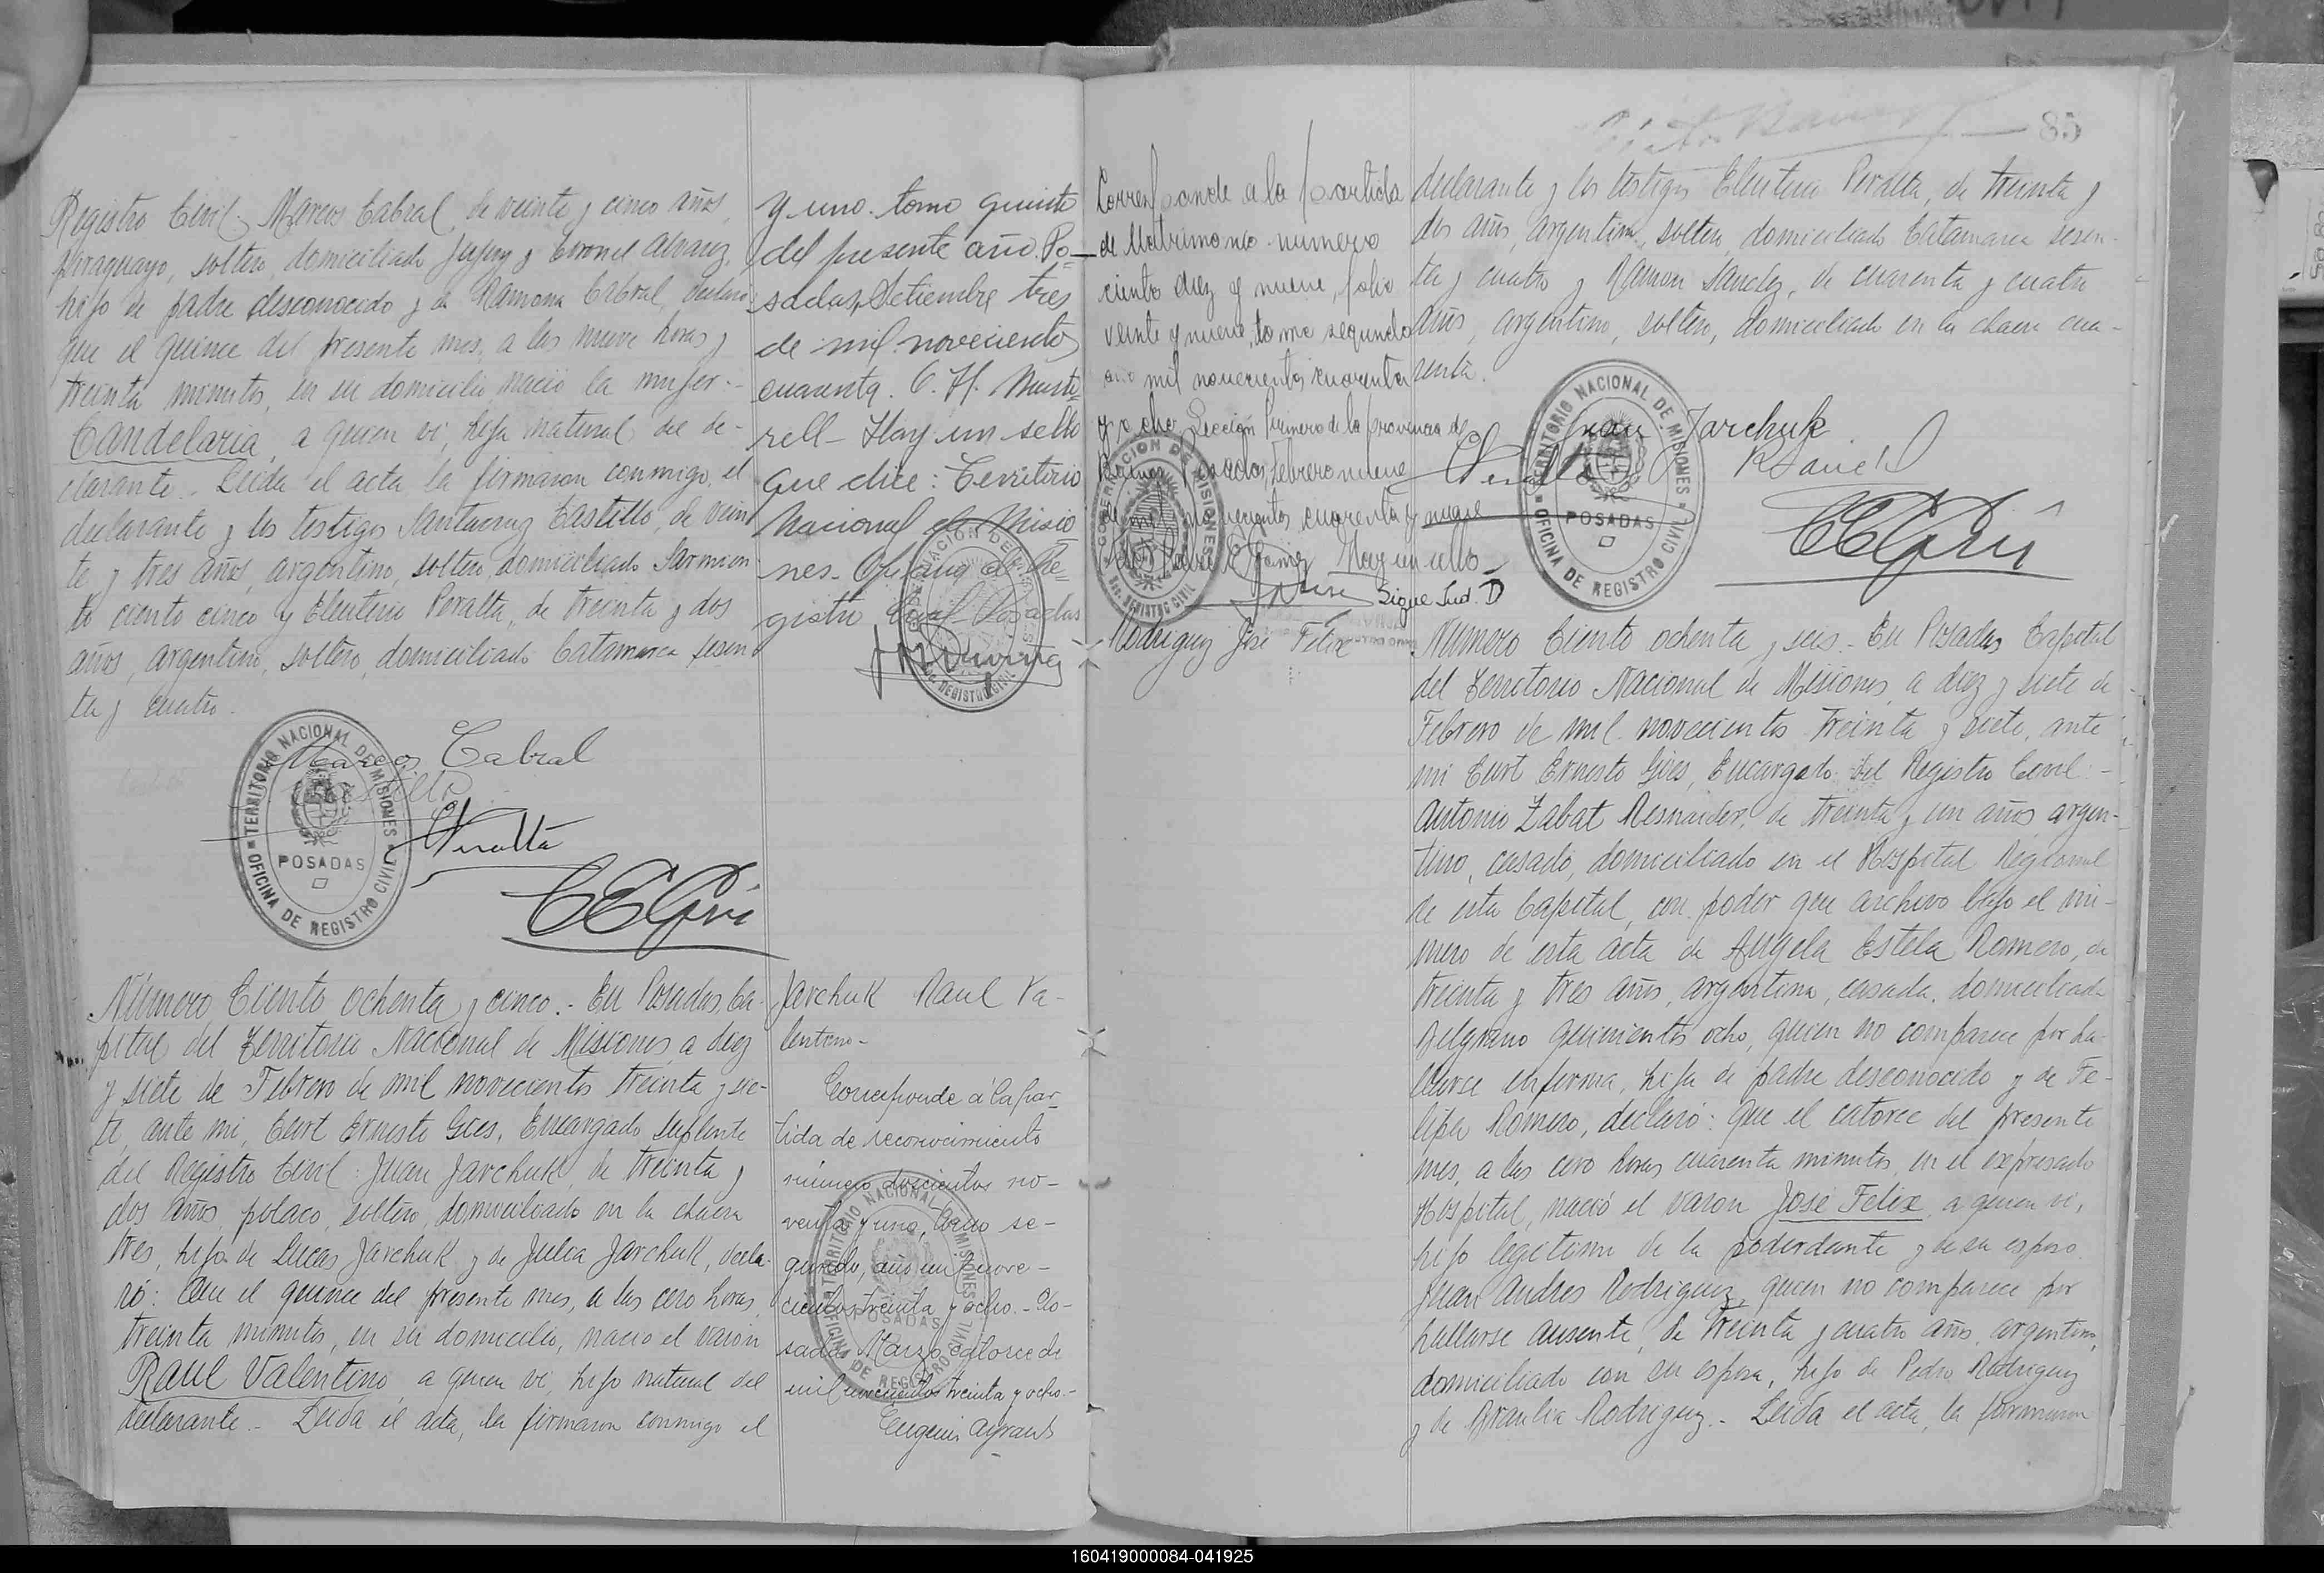 Registro Civil, Marcos Cabral, de veinte y cinco años,
paraguayo, soltero, domiciliado Jujuy y Coronel Alvarez,
hijo de padre desconocido y de Ramona Cabral, declaro
que el quince del presente mes, a las nueve horas y
treinta minutos, en su domicilio nació la mujer:-
Candelaria, a quien vi, hija natural del de-
clarante.- Leida el acta la firmaron conmigo, el
declarante y los testigos Santacruz Castillo, de vein
te y tres años, argentino, soltero, domiciliado Sarmien
to ciento cinco y Eleuterio Peralta, de treinta y dos
años, argentino, soltero, domiciliado Catamarca sesen
ta y cuatro.
Marcos Cabral
Castillo
Peralta
TERRITORIO NACIONAL DE MISIONES
POSADAS
OFICINA DE REGISTRO CIVIL
y uno. tomo quinto
del presente año. Po=
sadas, Setiembre tres
de mil novecientos
cuarenta. C. H. Muste
rell- Hay un sello
que dice: Territorio
Nacional de Misio
nes- Oficina de Re=
gistro Civil- Posadas
Número Ciento ochenta y cinco.- En Posadas, Ca-
pital del Territorio Nacional de Misiones, a diez
y siete de Febrero de mil novecientos treinta y sie-
te, ante mi, Curt Ernesto Gies, Encargado Suplente
del Registro Civil: Juan Jarchuk, de treinta y
dos años, polaco, soltero, domiciliado en la chacra
tres, hijo de Lucas Jarchuk y de Julia Jarchuk, decla-
ró: Que el quince del presente mes, a las cero horas,
treinta minutos, en su domicilio, nació el varón
Raul Valentino, a quien vi, hijo natural del
declarante.- Leida el acta, la firmaron conmigo el
Jarchuk Raul Va-
lentino-
Corresponde á la par-
tida de reconocimiento
número doscientos no-
venta y uno, tomo se-
gundo, año mil nove-
cientos treinta y ocho.- Po-
sadas Marzo catorce de
mil novecientos treinta y ocho.-
TERRITORIO NACIONAL DE MISIONES
POSADAS
OFICINA DE REGISTRO CIVIL
85
Corresponde a la partida
de Matrimonio numero
ciento diez y nueve, folio
veinte y nueve, tomo segundo
año mil novecientos cuarenta
y ocho, Sección Primero de la provincia de
Posadas, Febrero nueve
de mil novecientos cuarenta y nueve
Sigue Ind. D
GOBERNACION DE MISIONES
REGISTRO CIVIL
declarante y los testigos Eleuterio Peralta, de treinta y
dos años, argentino, soltero, domiciliado Catamarca sesen-
ta y cuatro y Ramon Sanchez, de cuarenta y cuatro
años, argentino, soltero, domiciliado en la chacra cua-
renta.
Juan Jarchuk
Peralta
TERRITORIO NACIONAL DE MISIONES
POSADAS
OFICINA DE REGISTRO CIVIL
Rodriguez José Felix
Número Ciento ochenta y seis.- En Posadas Capital
del Territorio Nacional de Misiones, a diez y siete de
Febrero de mil novecientos treinta y siete, ante
mi Curt Ernesto Gies, Encargado del Registro Civil:-
Antonio Zabat Resnaider, de treinta y un años, argen-
tino, casado, domiciliado en el Hospital Regional
de esta Capital, con poder que archivo bajo el nú-
mero de esta acta de Angela Estela Romero, de
treinta y tres años, argentina, casada, domiciliada
Belgrano quinientos ocho, quien no comparece por ha-
llarse enferma, hija de padre desconocido y de Fe-
lipa Romero, declaró: Que el catorce del presente
mes, a las cero horas cuarenta minutos, en el expresado
Hospital, nació el varon José Felix, a quien vi,
hijo legitimo de la poderdante y de su esposo
Juan Andres Rodriguez, quien no comparece por
hallarse ausente, de treinta y cuatro años, argentino,
domiciliado con su esposa, hijo de Pedro Rodriguez
y de Braulia Rodriguez.- Leida el acta, la firmaron
160419000084-041925